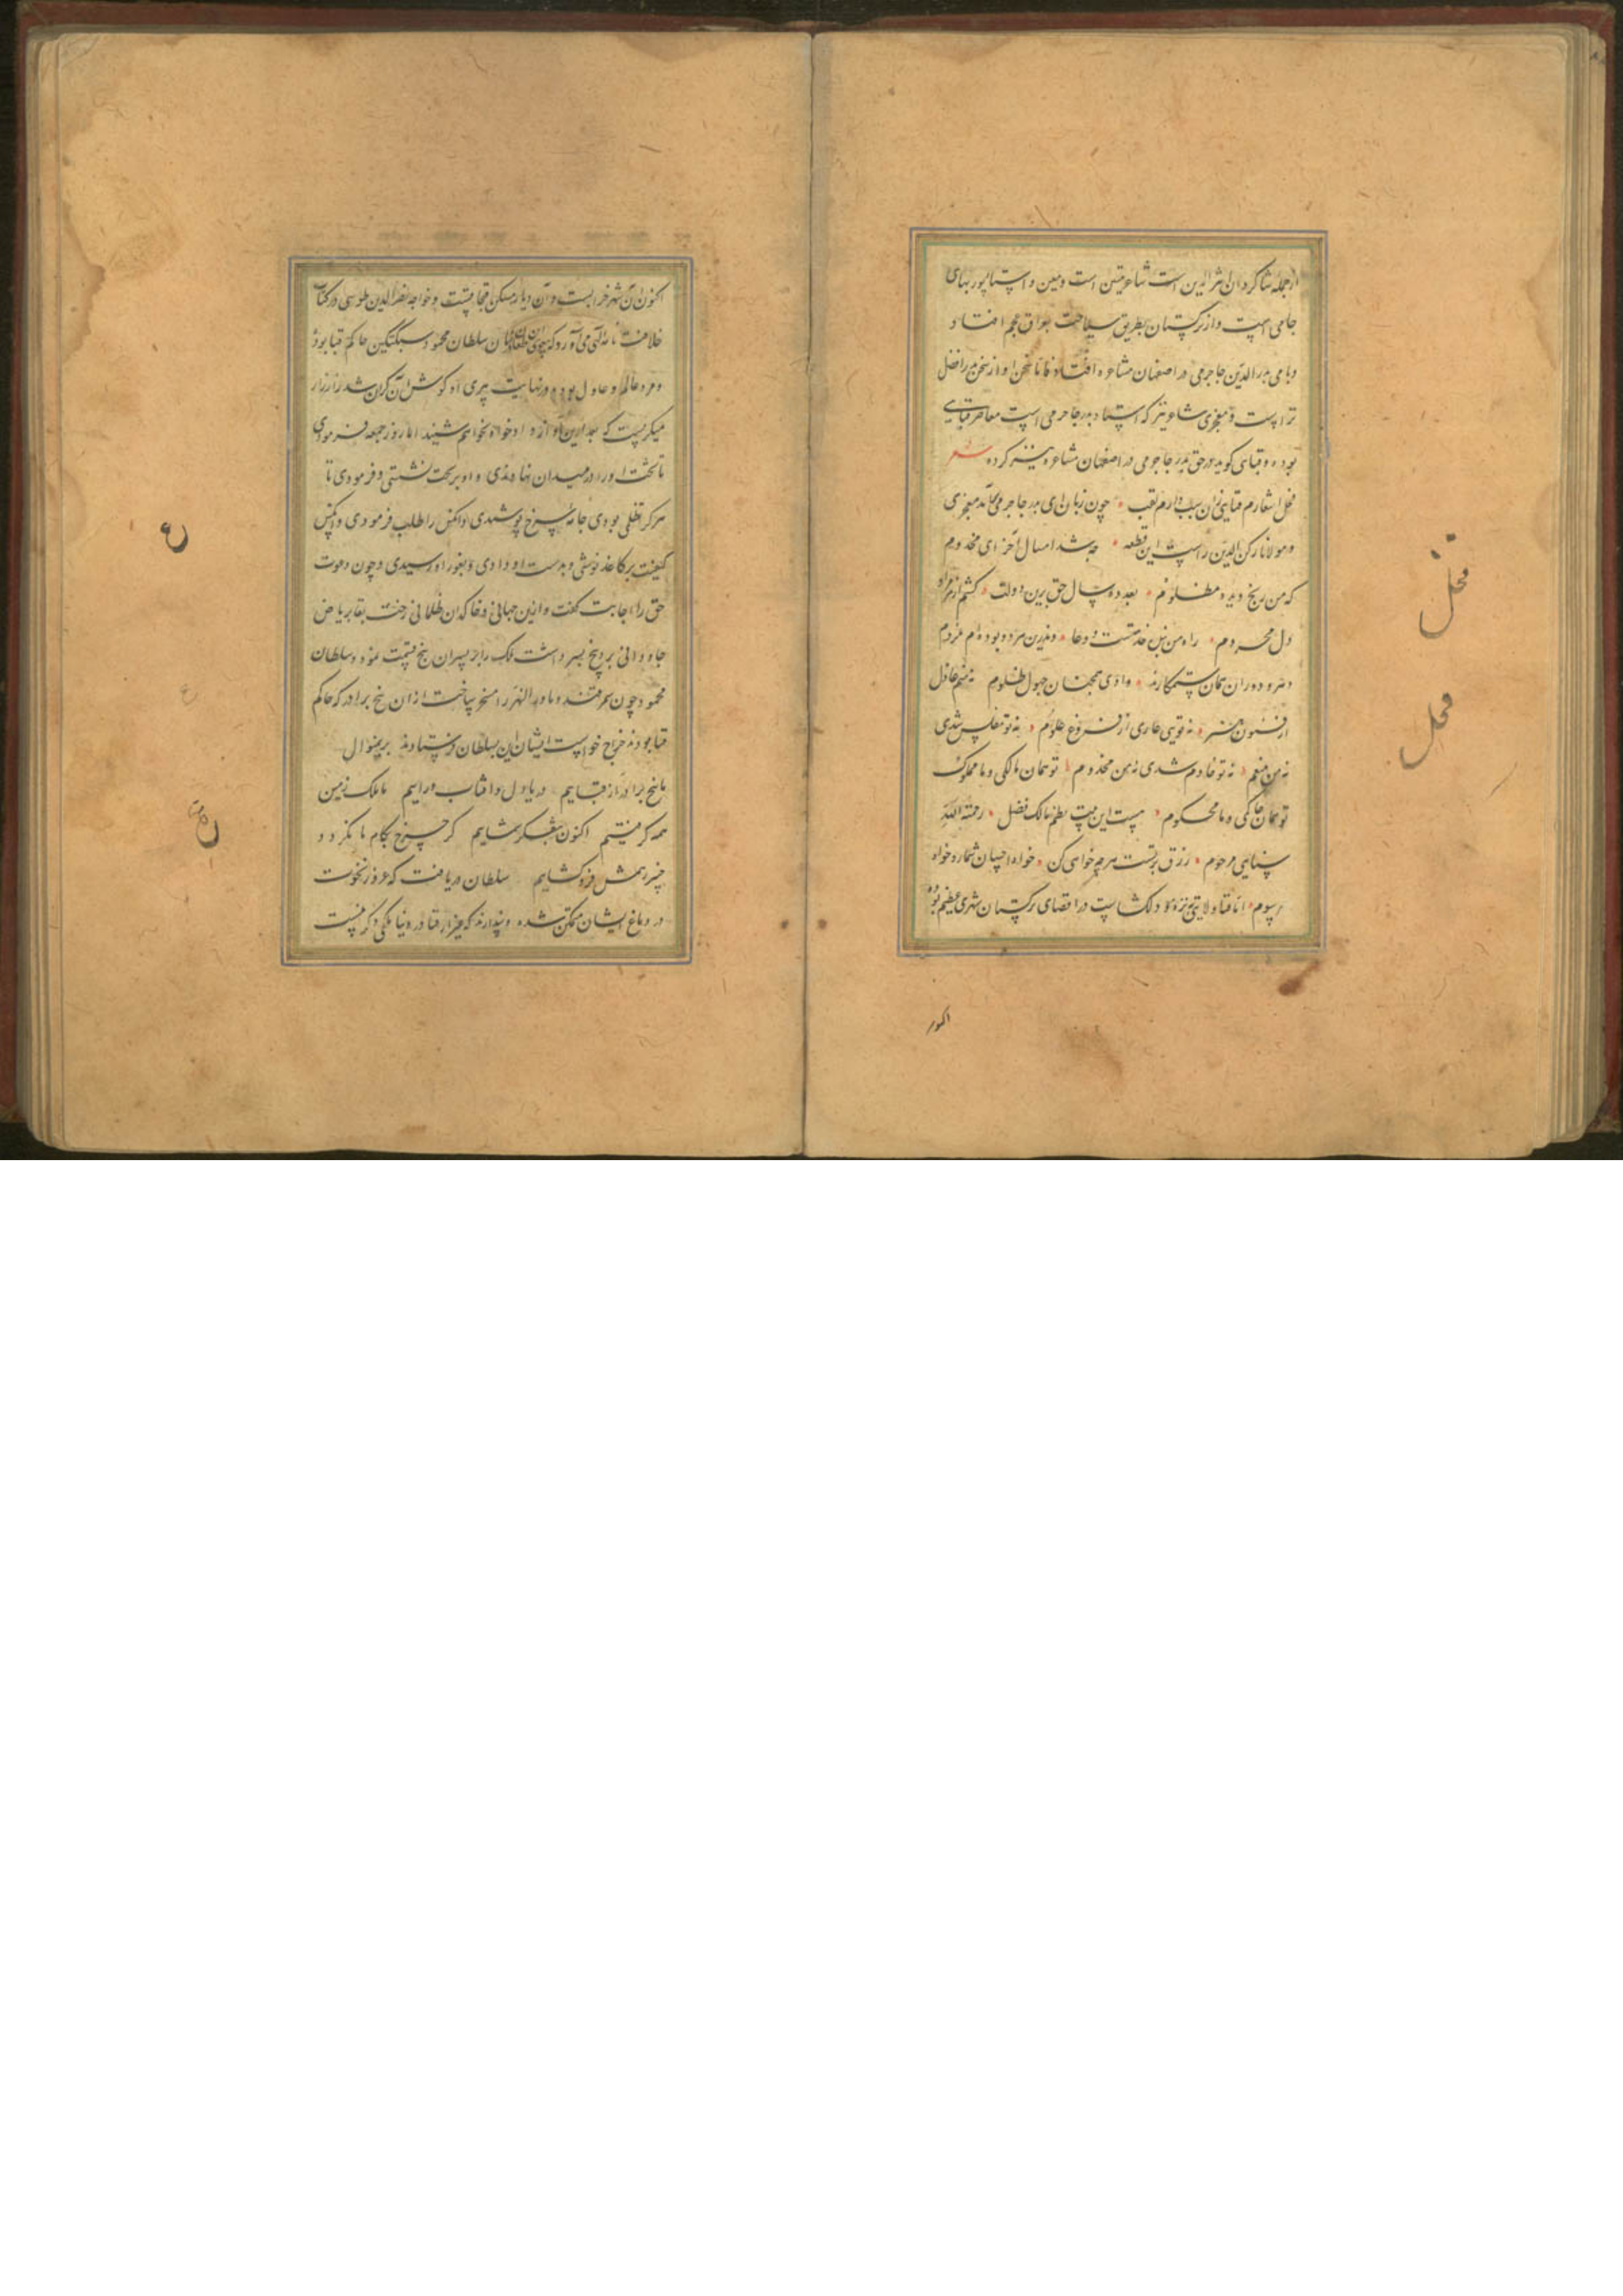 ازجمله شاکردان اثیرالدین است شاعر متین است ومعین و استاد پوربهای
جامی است و از ترکستان بطریق سیاحت بعراق عجم افتاد
و با می بدرالدین جاجرمی در اصفهان مشاعره افتاد و فاما سخن او از سخن بدر افضل
تر است و معجزی شاعر نیز که استاد بدر جاجرمی است معاصر قبایی
بوده و قبایی کوید در حق بدر جاجرمی در اصفهان مشاعره نیز کرده شعر
نحل اشعارم قبایی زان سبب دارم لقب چون زبان ای بدر جاجرمی آمد معجزی
ومولانا رکن الدین راست این قطعه چه شد امسال آخر ای مخدوم
که من رنج دیده مظلوم بعد ده سال حق برین دولت کشتم از مراد
دل محروم راه من بس خدمتست و دعا وندرین مرد و بوده ام مردم
دهر و دوران همان ستمکارند وآدمی همچنان جهول ظلوم نه منم عاطل
از فنون هنر نه تویی عاری از فروغ علوم نه تو مفلس شدی
نه من منعم نه تو خادم شدی نه من مخدوم تو همان مالکی و ما مملوک
تو همان حاکمی و ما محکوم هست این بیت نظم مالک فضل رحمة الله
سنایی مرحوم رزق برتست هرچه خواهی کن خواه احسان شمار و خواه
رسوم اما قبا ولایتی نزه و دلکشاست در اقصای ترکستان شهری عظیم بوده
اکنون
نحل
نحل
اکنون آن شهر خرابست و آن دیار مسکن قبچاقست و خواجه نصیرالدین طوسی در کتاب
خلافت نامه الهی می آورد که در زمان سلطان محمود سبکتکین حاکم قبا بود
و مرد عالم و عادل بود و در نهایت پیری او کوش آن کران شد زار زار
میکریست که بعد ازین آواز داد خواه نخواهم شنید اما روز جمعه فرمودی
تا تخت او را در میدان نهادندی و او بر تخت نشستی و فرمودی تا
هر کرا تظلمی بودی جامه سرخ پوشیدی و آنکس را طلب فرمودی و آنکس
کیفیت بر کاغذ نوشتی و بدست او دادی و بغور او رسیدی و چون دعوت
حق را اجابت کفت و ازین جهانی و خاکدان ظلمانی رخت بقا بریاض
جاودانی برد پنج پسر داشت ملک را بر پسران پنج قسمت نمود و سلطان
محمود چون سمرقند و ماورالنهر را مسخر ساخت از آن پنج برادر که حاکم
قبا بودند خراج خواست ایشان این بسلطان فرستادند برین منوال
ما پنج برادر از قباییم دریا دل و آفتاب وراییم ما ملک زمین
همه کرفتیم اکنون بتفکر سماییم کر چرخ بکام ما نکردد
چنبر ز همش فرو کشاییم سلطان دریافت که غرور نخوت
در دماغ ایشان متمکن شده و پندارند که جز از قبا در دنیا ملکی دکر نیست
ع